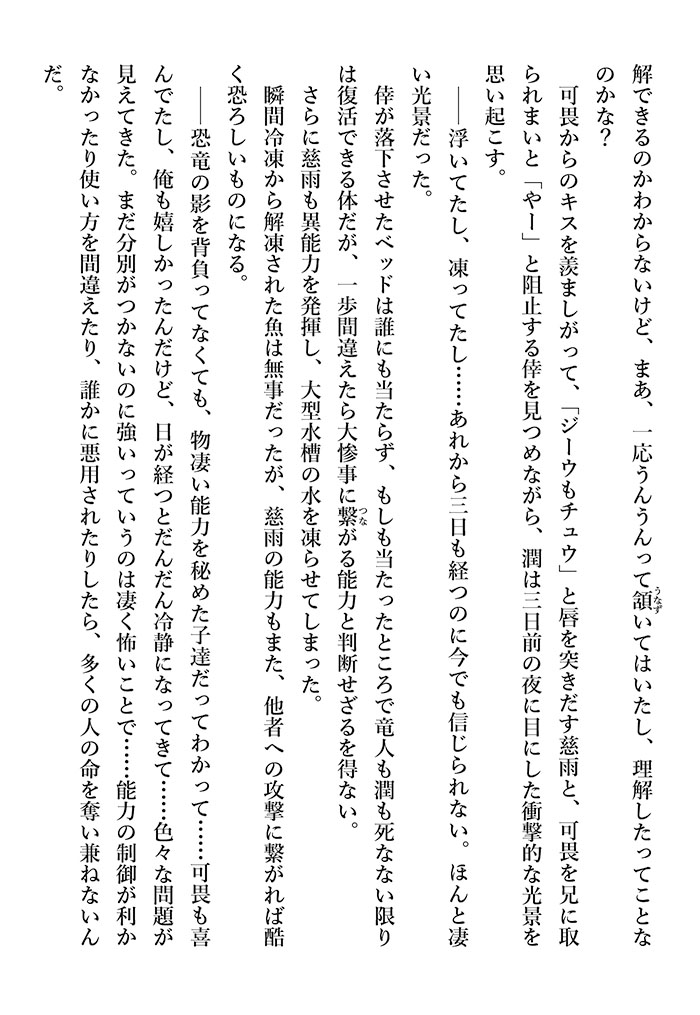 解できるのかわからないけど、まあ、一応うんうんって頷いてはいたし、理解したってことな
のかな？
可畏からのキスを羨ましがって、「ジーウもチュウ」と唇を突きだす慈雨と、可畏を兄に取
られまいと「やー」と阻止する倖を見つめながら、潤は三日前の夜に目にした衝撃的な光景を
思い起こす。
――浮いてたし、凍ってたし……あれから三日も経つのに今でも信じられない。ほんと凄
い光景だった。
倖が落下させたベッドは誰にも当たらず、もしも当たったところで竜人も潤も死なない限り
は復活できる体だが、一歩間違えたら大惨事に繋がる能力と判断せざるを得ない。
さらに慈雨も異能力を発揮し、大型水槽の水を凍らせてしまった。
瞬間冷凍から解凍された魚は無事だったが、慈雨の能力もまた、他者への攻撃に繋がれば酷
く恐ろしいものになる。
――恐竜の影を背負ってなくても、物凄い能力を秘めた子達だってわかって……可畏も喜
んでたし、俺も嬉しかったんだけど、日が経つとだんだん冷静になってきて……色々な問題が
見えてきた。まだ分別がつかないのに強いっていうのは凄く怖いことで……能力の制御が利か
なかったり使い方を間違えたり、誰かに悪用されたりしたら、多くの人の命を奪い兼ねないん
だ。